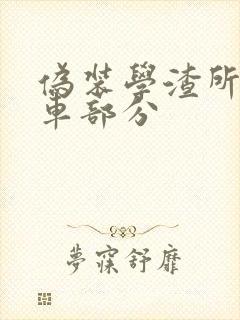 偽裝學渣所
車部分
夢寐舒靡